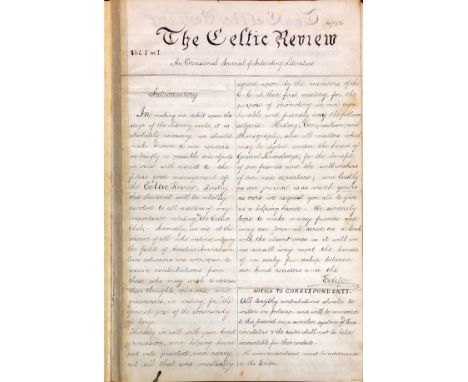 The Celtic Review
Vol I No 1
An Occasional Journal of Interesting Literature
Introductory
In making our debut upon the
stage of the literary world it is
absolutely necessary we should
make known to our readers
as briefly as possible our objects
in view with regard to the
future good management of
the Celtic Review. Firstly
this Journal will be wholly
devoted to all matters of any
importance relating the Celtic
Club - Secondly, as one at the
service of all who interest among
the field of Amateur Journalism
Our columns are ever open to
receive contributions from
those who may wish to express
their thoughts, opinions and
grievances, in writing, for the
general good of the community
at large.
Thirdly we will with your kind
permission, and helping hand
put into practice, and carry
out all that was mutually
agreed upon by the members of the
C.C. at their first meeting, for the
purpose of promoting in our own
humble and friendly way the following
subjects - History, Composition and
Phonography, and all matters which
may be before under the head of
General Knowledge, for the benefit
of our friends and the wellwishers
of our new departure; and lastly
as our journal is as much yours
as ours we request you all to give
us a helping hand. We sincerely
hope to make many friends and
may our Journal serve as a bond
with the absent ones as it will in
no small way knit the bonds
of an early friendship between
our kind readers and the
Editor
NOTICE TO CORRESPONDENTS.
All lengthy contributions should be
written in foolscap and will be answered
in this journal on a number system, if free
conciliatory & the writer shall not be held
accountable for their contents.
All communications must be addressed
to the Editor.